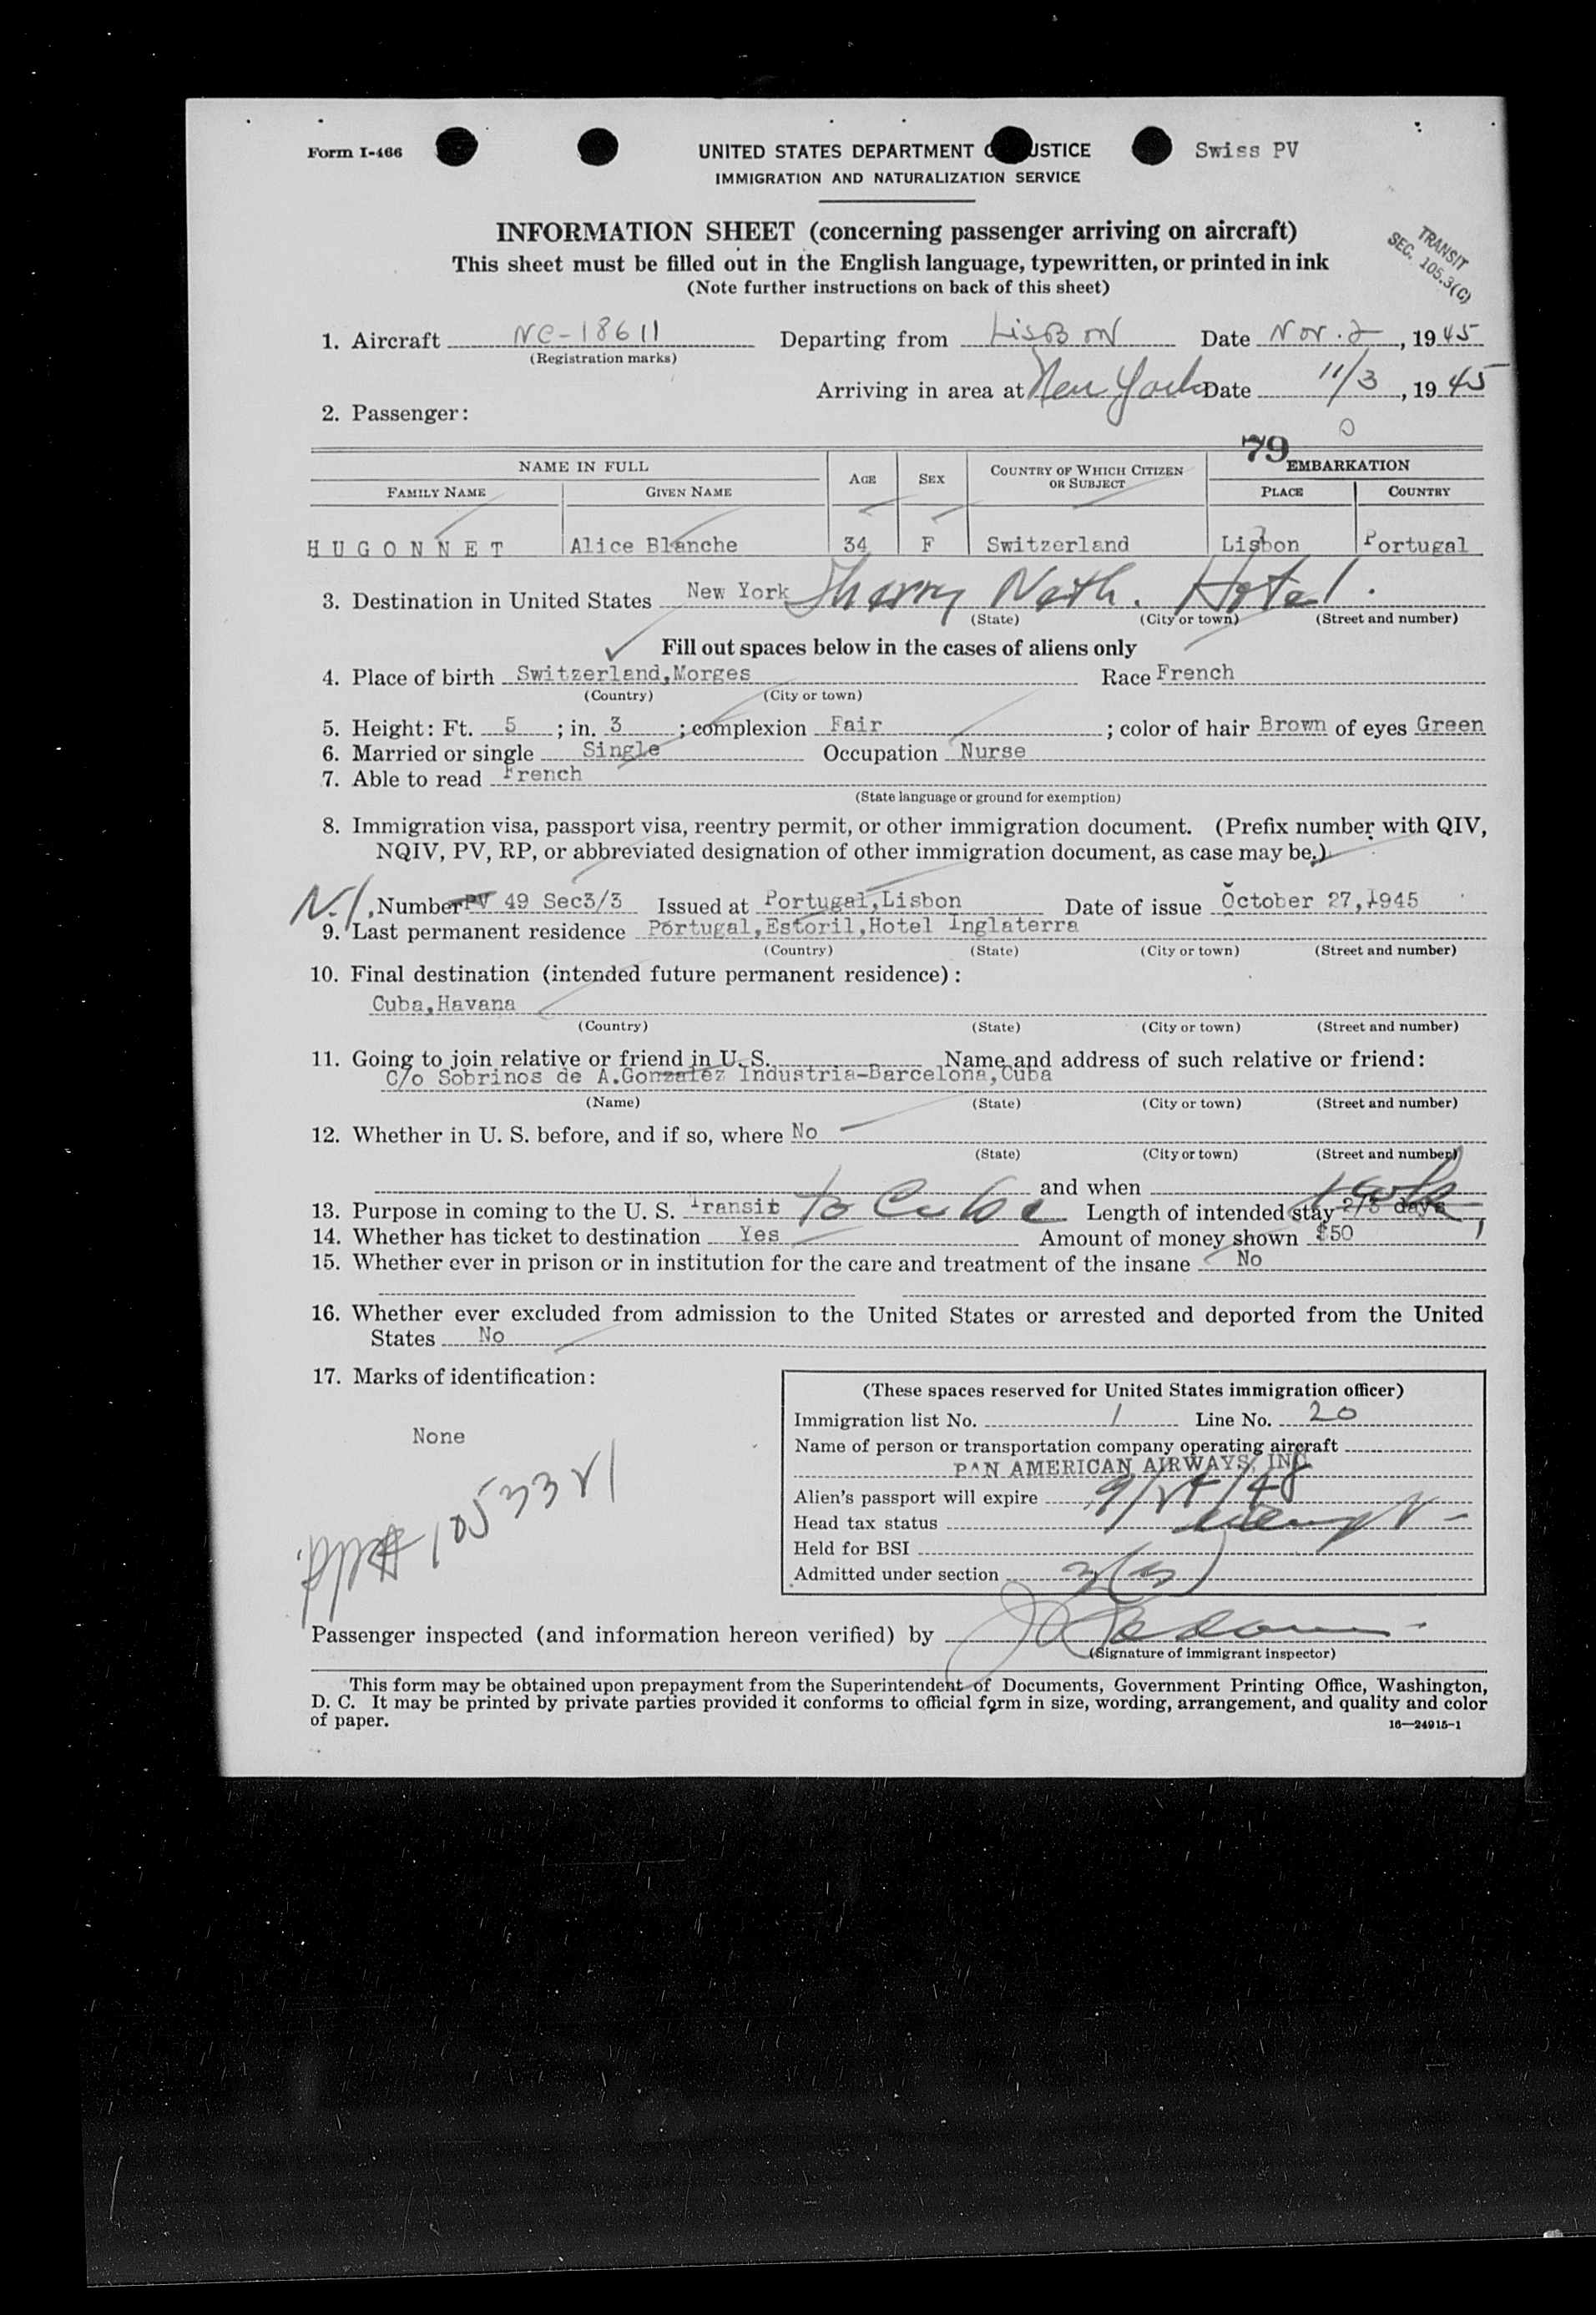 Form I-466
UNITED STATES DEPARTMENT O JUSTICE
Swiss PV
IMMIGRATION AND NATURALIZATION SERVICE
INFORMATION SHEET (concerning passenger arriving on aircraft)
This sheet must be filled out in the English language, typewritten, or printed in ink
(Note further instructions on back of this sheet)
TRANSIT
SEC. 105.3(C)
1. Aircraft NC-18611 Departing from LisBon Date Nov. 2, 1945
(Registration marks)
Arriving in area at New York Date 11/3, 1945
2. Passenger:
79
NAME IN FULL AGE SEX COUNTRY OF WHICH CITIZEN OR SUBJECT EMBARKATION
FAMILY NAME GIVEN NAME PLACE COUNTRY
HUGONNET Alice Blanche 34 F Switzerland Lisbon Portugal
3. Destination in United States New York Sherry Neth. Hotel.
(State) (City or town) (Street and number)
Fill out spaces below in the cases of aliens only
4. Place of birth Switzerland,Morges Race French
(Country) (City or town)
5. Height: Ft. 5; in. 3; complexion Fair; color of hair Brown of eyes Green
6. Married or single Single Occupation Nurse
7. Able to read French
(State language or ground for exemption)
8. Immigration visa, passport visa, reentry permit, or other immigration document. (Prefix number with QIV,
NQIV, PV, RP, or abbreviated designation of other immigration document, as case may be.)
Number PV 49 Sec3/3 Issued at Portugal,Lisbon Date of issue October 27,1945
9. Last permanent residence Portugal,Estoril,Hotel Inglaterra
(Country) (State) (City or town) (Street and number)
10. Final destination (intended future permanent residence):
Cuba,Havana
(Country) (State) (City or town) (Street and number)
11. Going to join relative or friend in U. S. Name and address of such relative or friend:
C/o Sobrinos de A.Gonzalez Industria-Barcelona,Cuba
(Name) (State) (City or town) (Street and number)
12. Whether in U. S. before, and if so, where No
(State) (City or town) (Street and number)
and when
13. Purpose in coming to the U. S. Transit to Cuba Length of intended stay 2/3 days
14. Whether has ticket to destination Yes Amount of money shown $50
15. Whether ever in prison or in institution for the care and treatment of the insane No
16. Whether ever excluded from admission to the United States or arrested and deported from the United
States No
17. Marks of identification:
None
(These spaces reserved for United States immigration officer)
Immigration list No. 1 Line No. 20
Name of person or transportation company operating aircraft
PAN AMERICAN AIRWAYS, INC.
Alien's passport will expire 9/24/48
Head tax status exempt
Held for BSI
Admitted under section 3(3)
Passenger inspected (and information hereon verified) by
(Signature of immigrant inspector)
This form may be obtained upon prepayment from the Superintendent of Documents, Government Printing Office, Washington,
D. C. It may be printed by private parties provided it conforms to official form in size, wording, arrangement, and quality and color
of paper.
16—24915-1